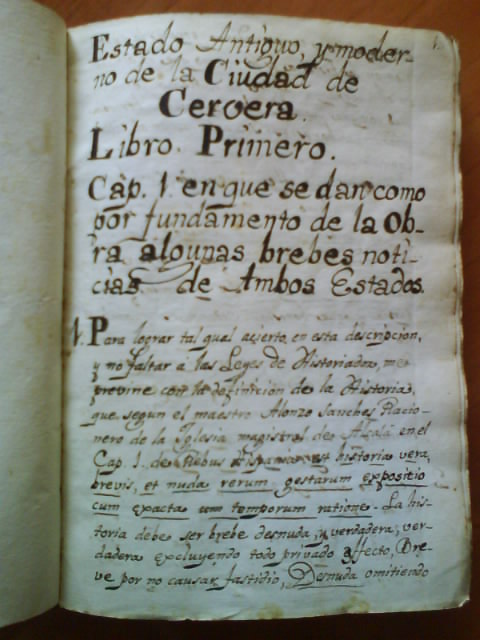 1.
Estado Antiguo, y moder-
no de la Ciudad de
Cervera.
Libro Primero.
Cap. 1. en que se dan como
por fundamento de la Ob-
ra algunas brebes noti-
cias de Ambos Estados.
1. Para lograr tal qual acierto, en esta descripcion,
y no faltar a las Leyes de Historiador, me
previne con la definicion de la Historia,
que segun el maestro Alonzo Sanches Racio-
nero de la Iglesia magistral de Alcalá en el
Cap. 1. de Rebus Hispaniae est historia vera,
brevis, et nuda rerum gestarum expositio
cum exacta temporum ratione. La his-
toria debe ser brebe desnuda, y verdadera; ver-
dadera excluyendo todo privado affecto, Bre-
ve por no causar fastidio, Desnuda omitiendo